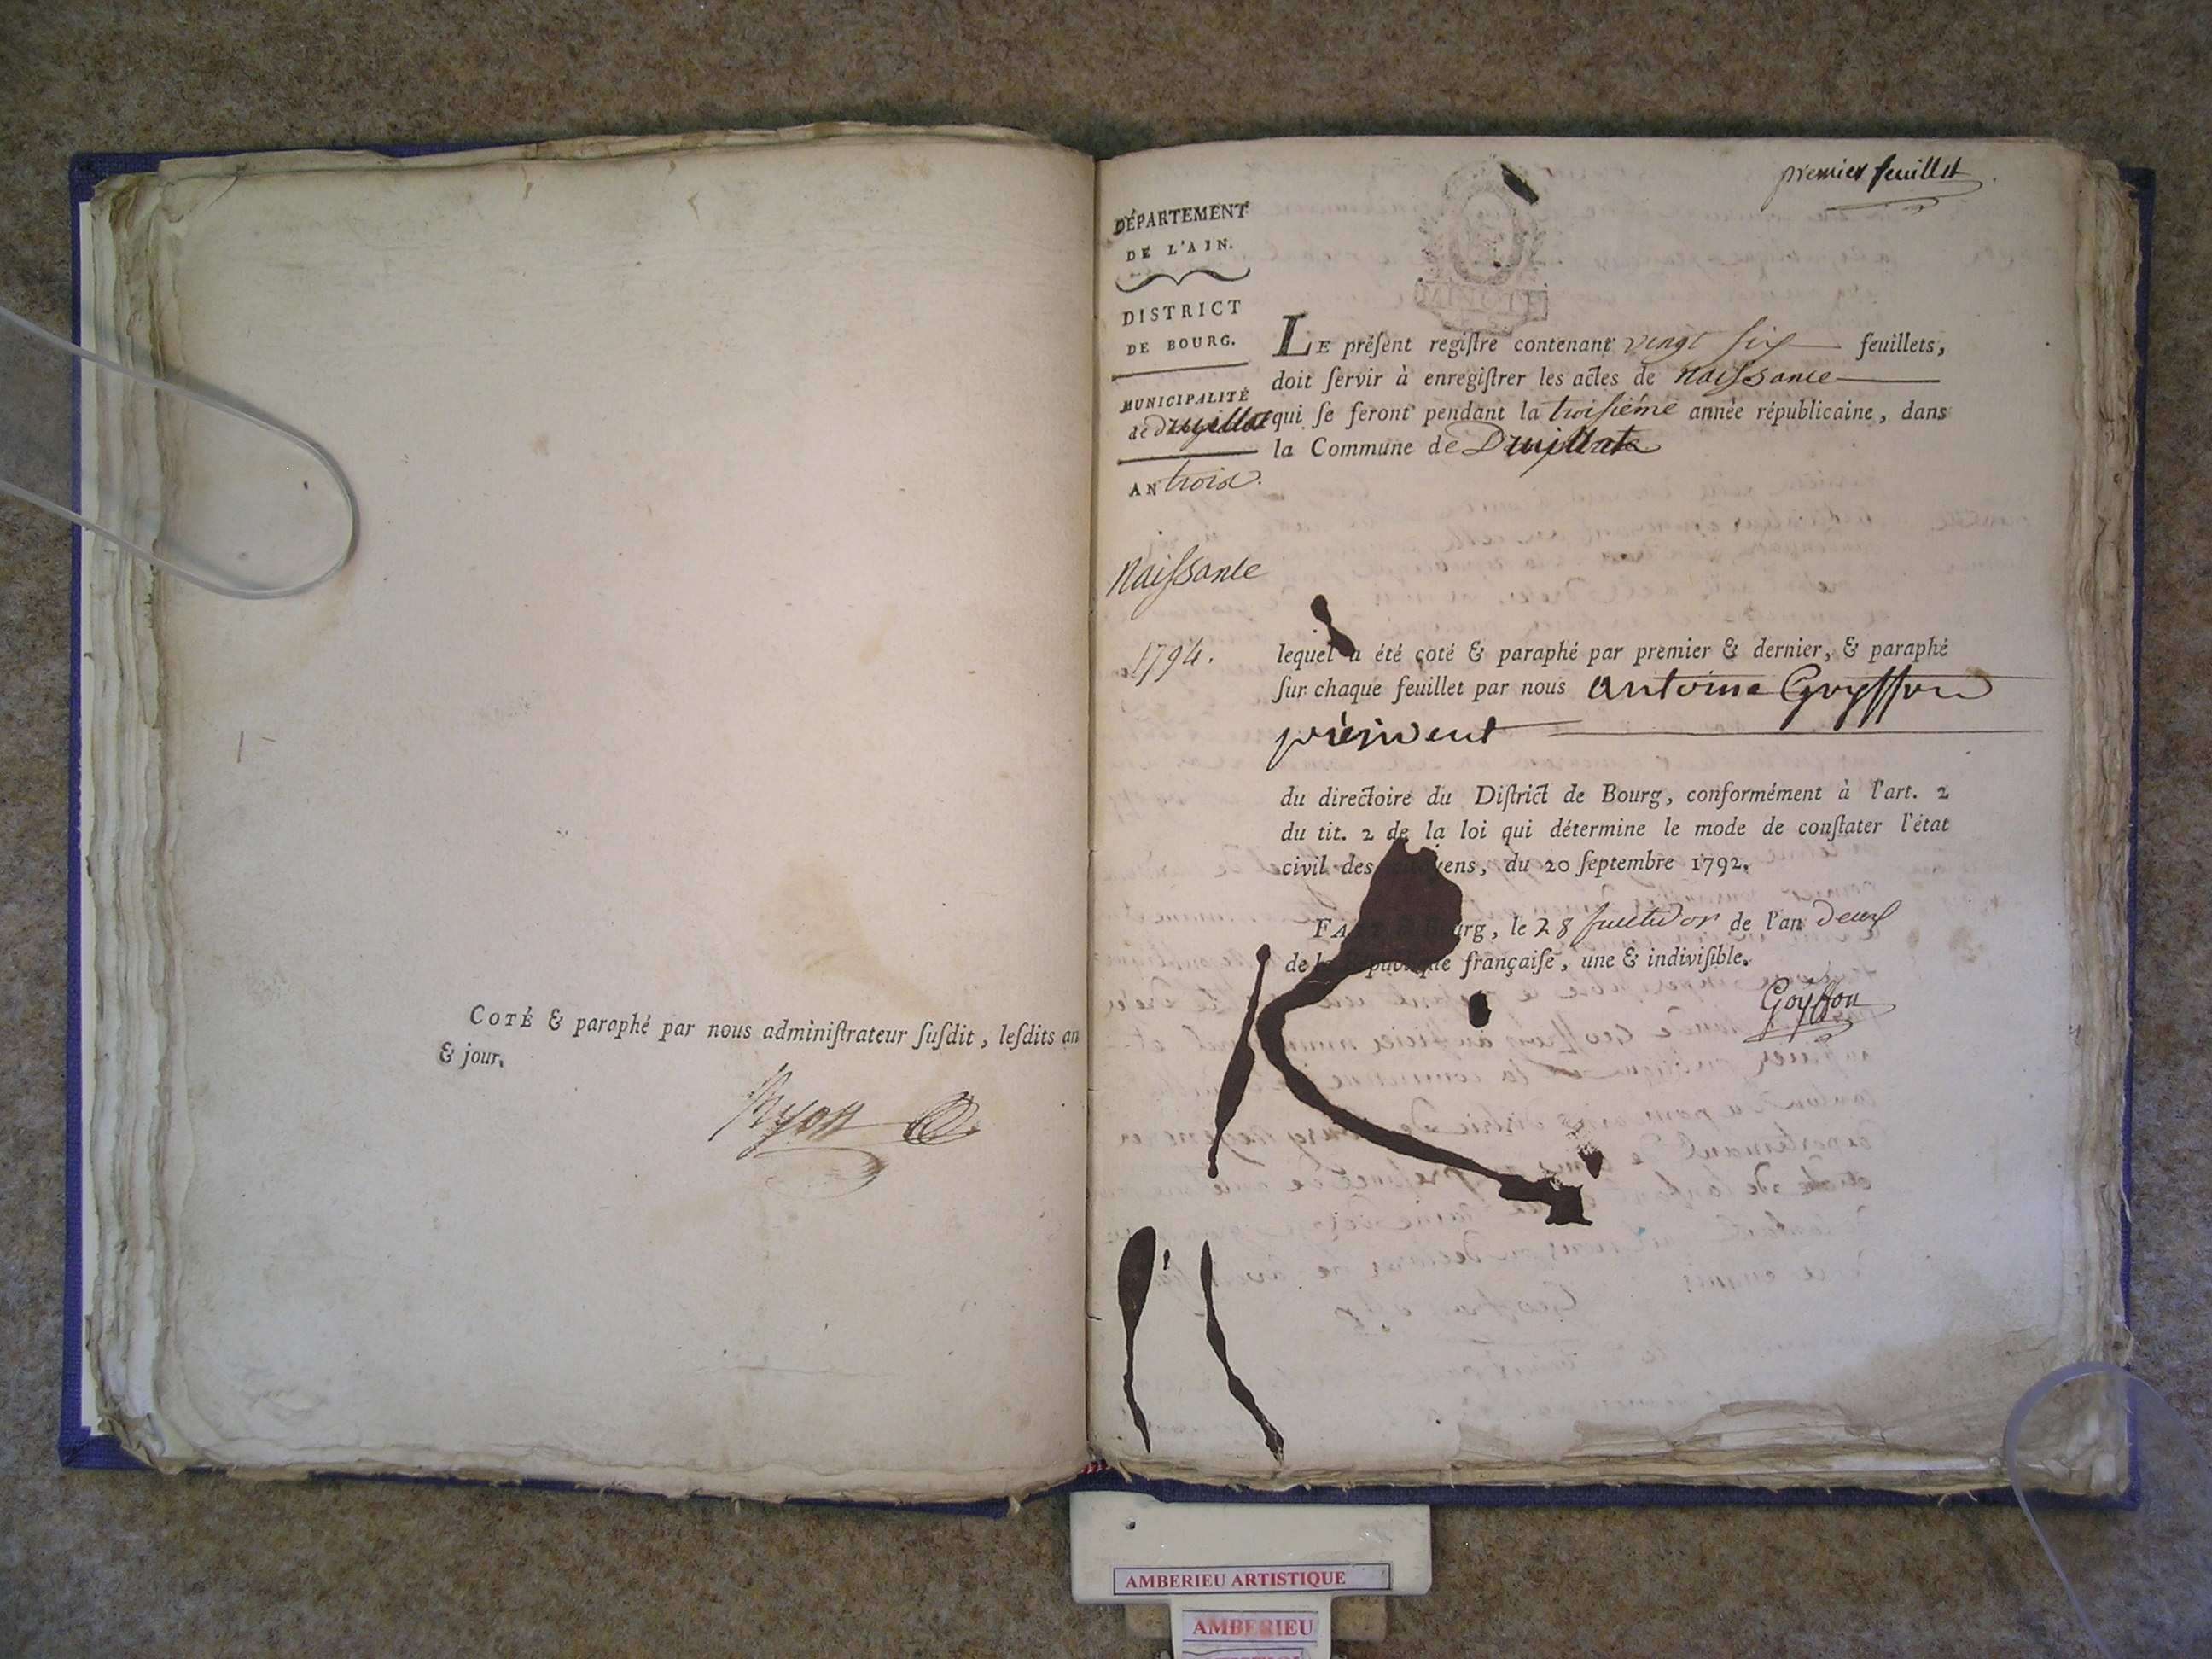 COTÉ & paraphé par nous administrateur susdit, lesdits an
& jour.
Ryon
premier feuillet
DÉPARTEMENT
DE L'AIN.
DISTRICT
DE BOURG.
MUNICIPALITÉ
de druillat
AN trois.
Naissance
1794.
LE présent registre contenant vingt six feuillets,
doit servir à enregistrer les actes de naissance
qui se feront pendant la troisiéme année républicaine, dans
la Commune de Druillat
lequel a été coté & paraphé par premier & dernier, & paraphé
sur chaque feuillet par nous Antoine Goyffon
président
du directoire du District de Bourg, conformément à l'art. 2
du tit. 2 de la loi qui détermine le mode de constater l'état
civil des citoyens, du 20 septembre 1792.
Bourg, le 28 fructidor de l'an deux
de la République française, une & indivisible.
Goyffon
AMBERIEU ARTISTIQUE
AMBERIEU